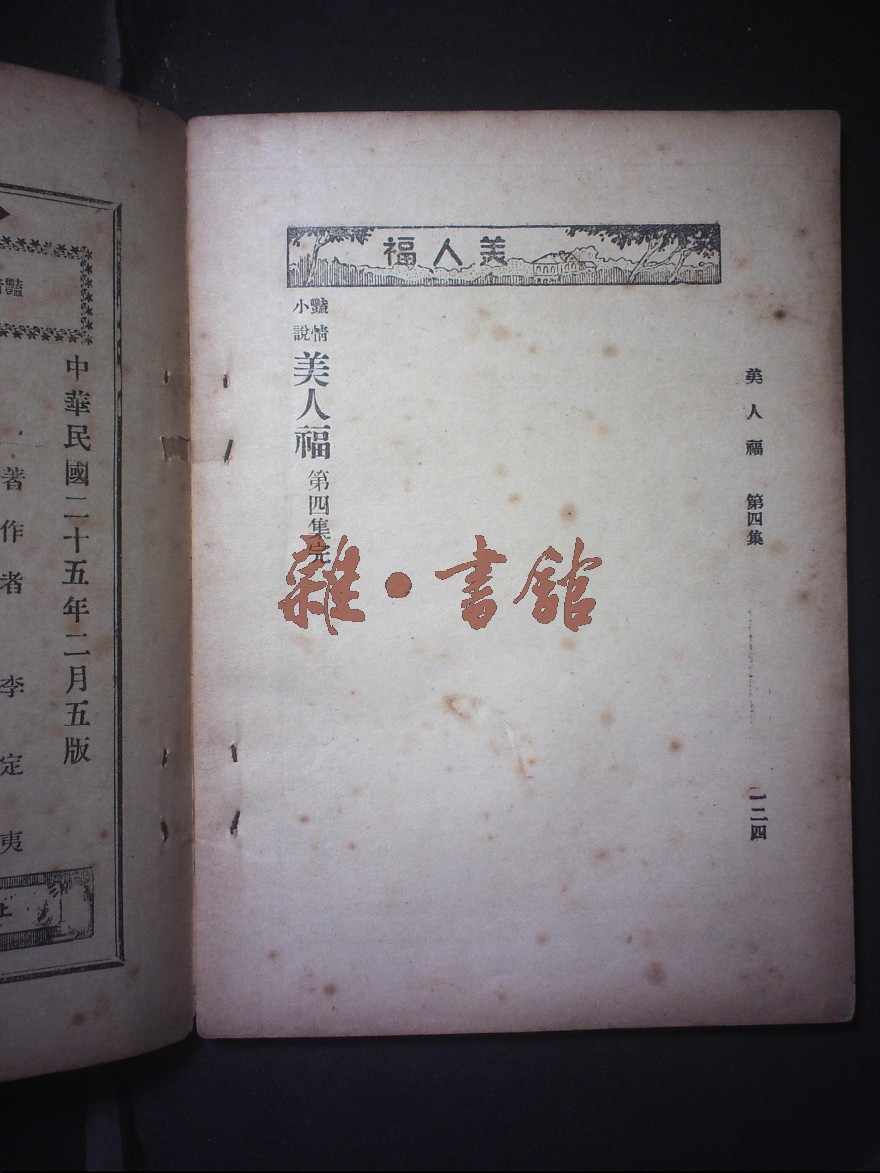 美人福
美人福 第四集
一二四
豔情小說 美人福 第四集完
雜·書館
豔
中華民國二十五年二月五版
著作者 李定夷
上